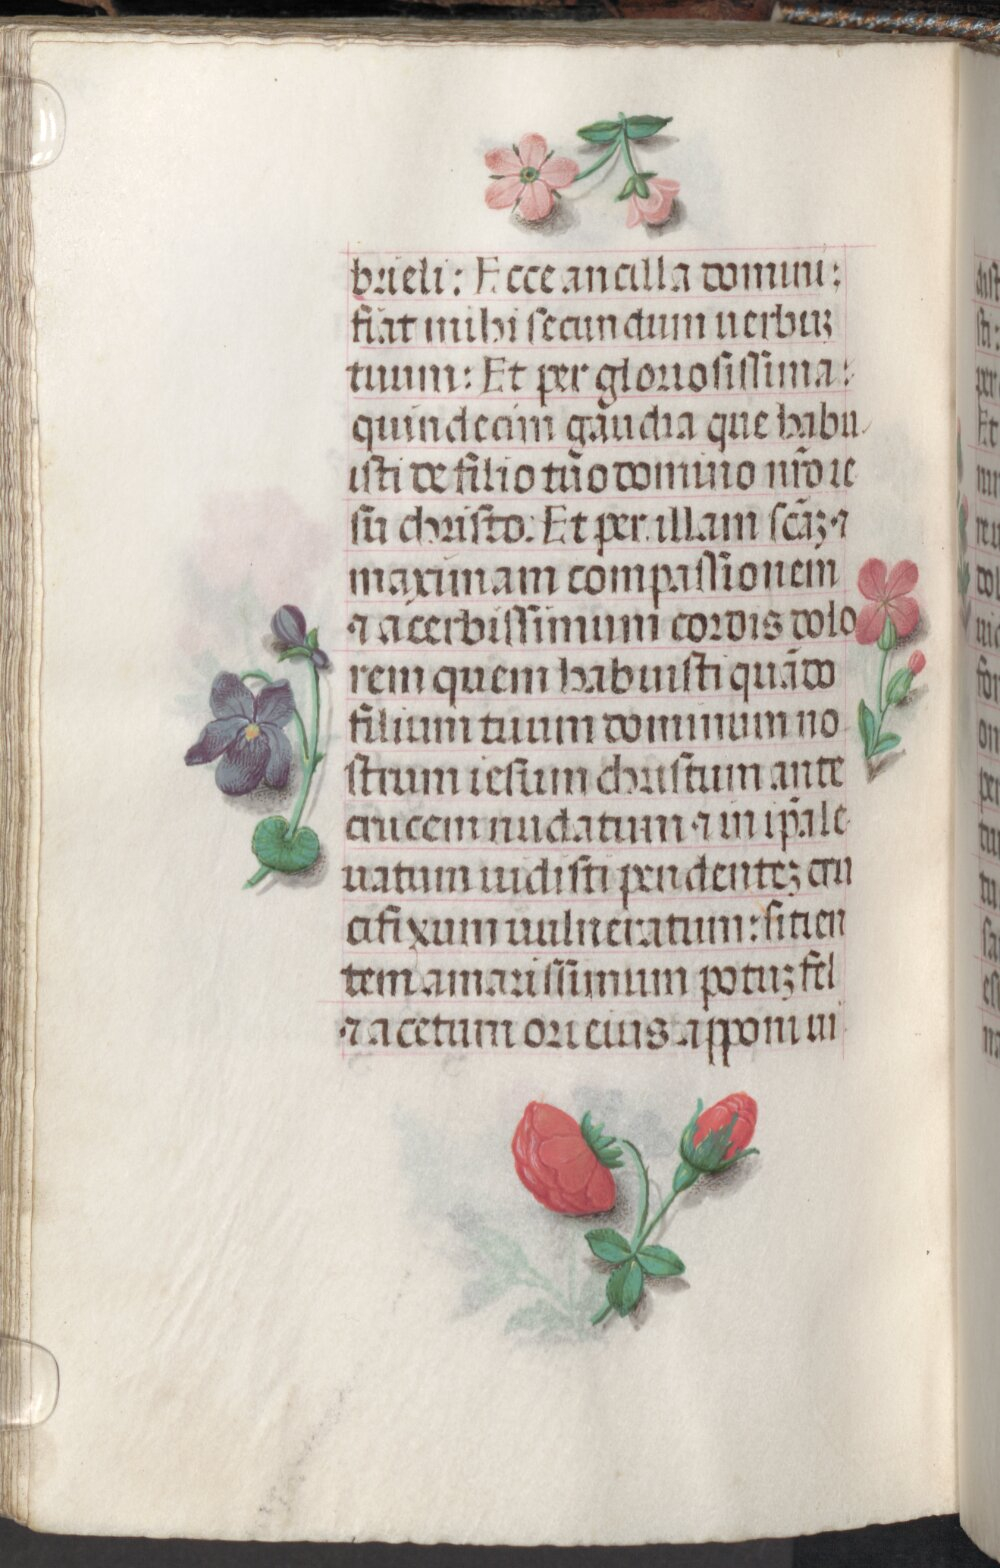 brieli: Ecce ancilla domini:
fiat mihi secundum uerbuʒ
tuum: Et per gloriosissima:
quindecim gaudia que habu
isti de filio tuo domino nr̃o ie
su christo. Et per illam scãʒ ⁊
maximam compassionem
⁊ acerbissimum cordis dolo
rem quem habuisti quãdo
filium tuum dominum no
strum iesum christum ante
crucem nudatum ⁊ in ip̃a le
uatum uidisti pendenteʒ cru
cifixum uulneratum: sitien
tem amarissimum potuʒ fel
⁊ acetum ori eius apponi ui